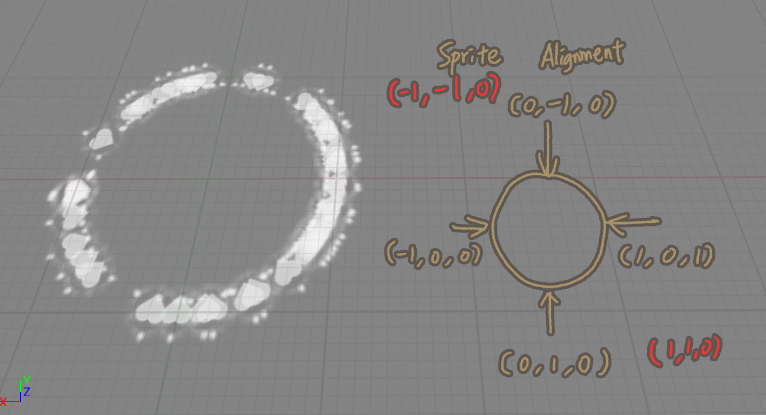 Sprite Alignment
(-1,-1,0) (0,-1,0)
(-1,0,0) (1,0,1)
(0,1,0) (1,1,0)
Y
Z
X